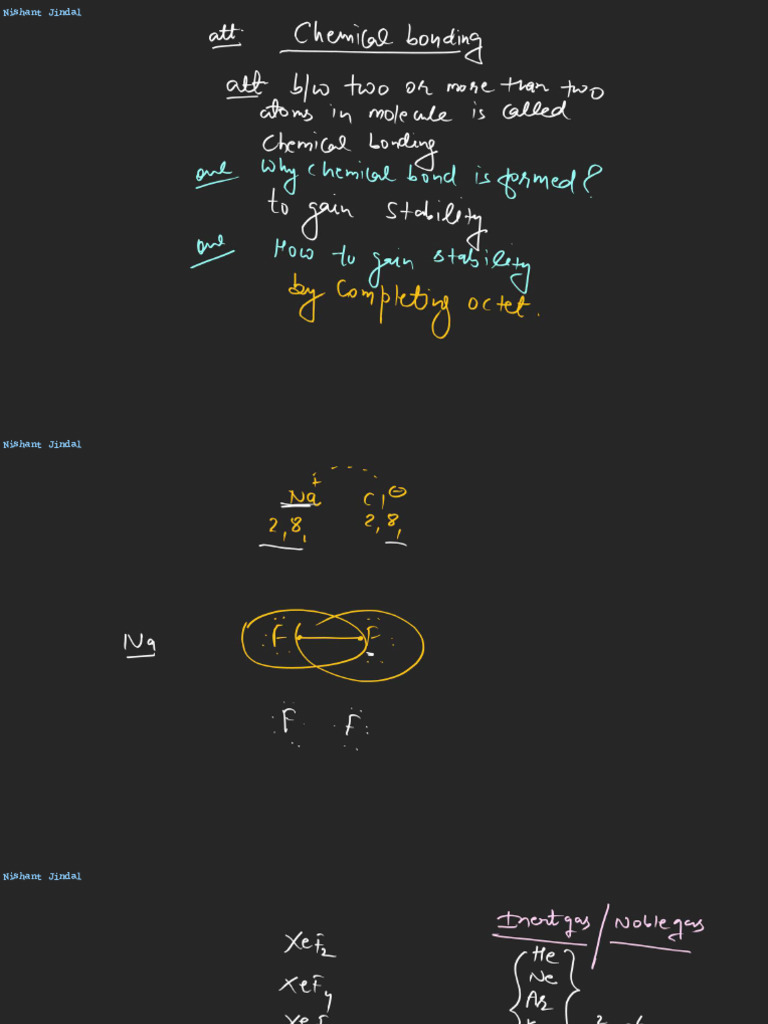 Nishant Jindal
att. Chemical bonding
att b/w two or more than two
atoms in molecule is called
Chemical bonding
Why chemical bond is formed?
to gain stability
How to gain stability
by completing octet.
Nishant Jindal
Na+ Cl⊖
2,8, 2,8,
Na F F
F F
Nishant Jindal
Inert gas / Noble gas
XeF2 He
Ne
XeF4 Ar